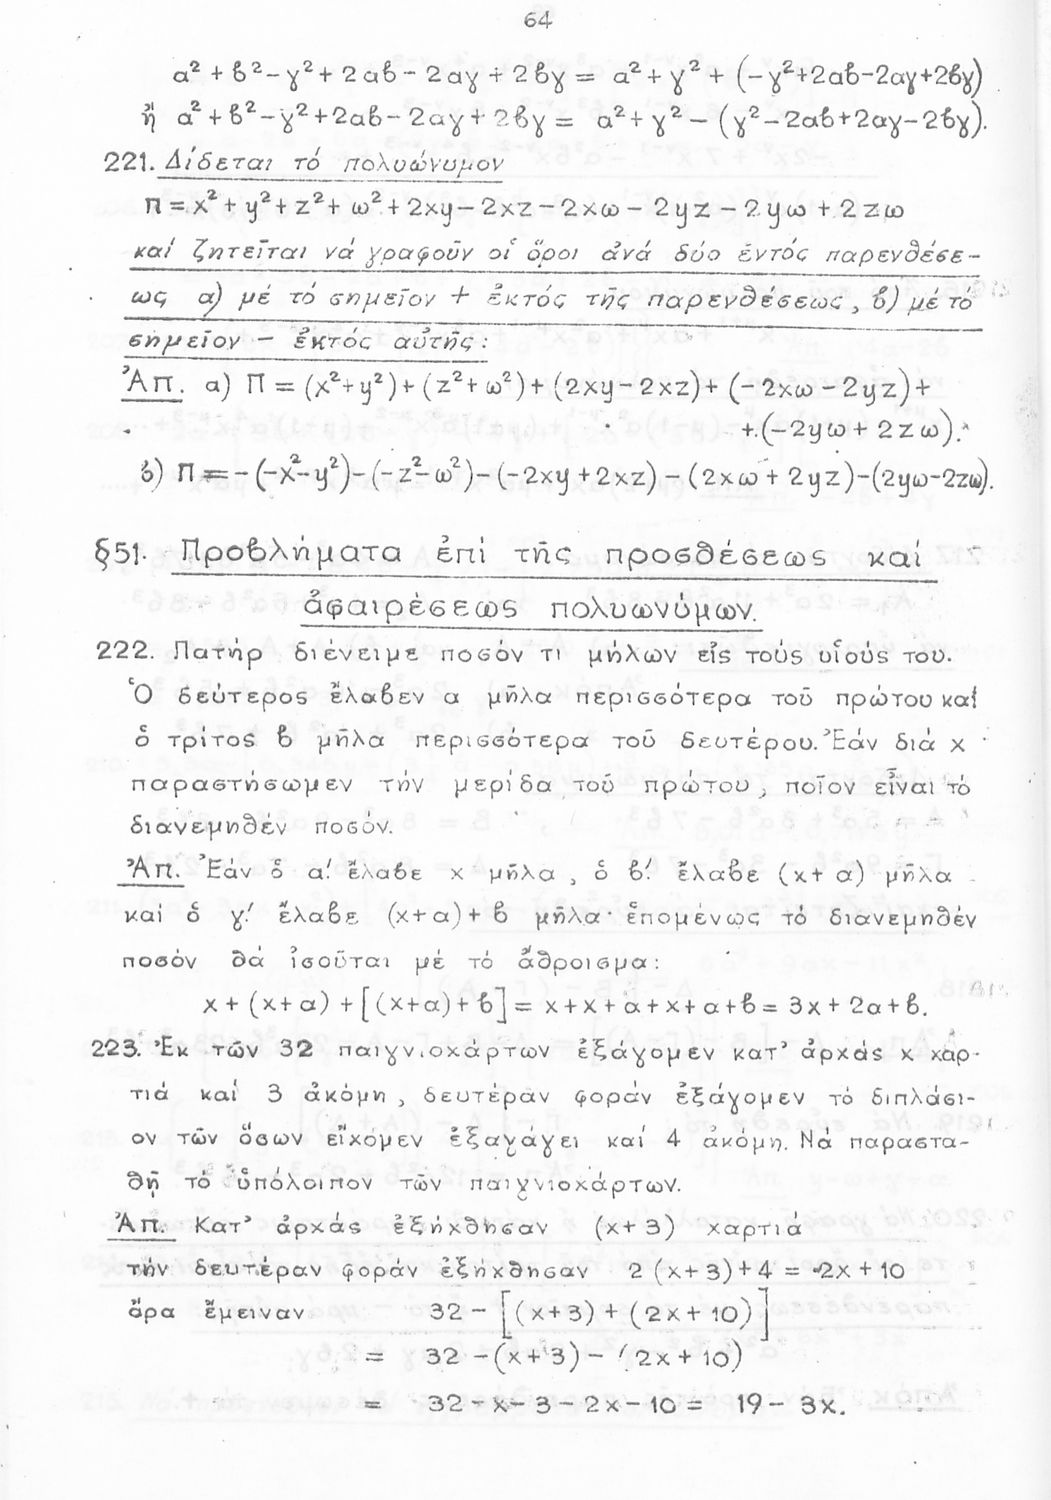 64
α² + β² - γ² + 2αβ - 2αγ + 2βγ = α² + γ² + (-γ²+2αβ-2αγ+2βγ)
ἤ α² + β² - γ² + 2αβ - 2αγ + 2βγ = α² + γ² - (γ² - 2αβ + 2αγ - 2βγ).
221. Δίδεται τό πολυώνυμον
Π = x² + y² + z² + ω² + 2xy - 2xz - 2xω - 2yz - 2yω + 2zω
καί ζητεῖται νά γραφοῦν οἱ ὅροι ἀνά δύο ἐντός παρενθέσε-
ως α) μέ τό σημεῖον + ἐκτός τῆς παρενθέσεως, β) μέ τό
σημεῖον - ἐκτός αὐτῆς:
Ἀπ. α) Π = (x²+y²)+(z²+ω²)+(2xy-2xz)+(-2xω-2yz)+
+(-2yω+2zω).
β) Π = -(-x²-y²)-(-z²-ω²)-(-2xy+2xz)-(2xω+2yz)-(2yω-2zω).
§51. Προβλήματα ἐπί τῆς προσθέσεως καί
ἀφαιρέσεως πολυωνύμων.
222. Πατήρ διένειμε ποσόν τι μήλων εἰς τούς υἱούς του.
Ὁ δεύτερος ἔλαβεν α μῆλα περισσότερα τοῦ πρώτου καί
ὁ τρίτος β μῆλα περισσότερα τοῦ δευτέρου. Ἐάν διά x
παραστήσωμεν τήν μερίδα τοῦ πρώτου, ποῖον εἶναι τό
διανεμηθέν ποσόν.
Ἀπ. Ἐάν ὁ α! ἔλαβε x μῆλα, ὁ β! ἔλαβε (x+α) μῆλα
καί ὁ γ! ἔλαβε (x+α)+β μῆλα· ἑπομένως τό διανεμηθέν
ποσόν θά ἰσοῦται μέ τό ἄθροισμα:
x + (x+α) + [(x+α)+β] = x+x+α+x+α+β = 3x+2α+β.
223. Ἐκ τῶν 32 παιγνιοχάρτων ἐξάγομεν κατ' ἀρχάς x χαρ-
τιά καί 3 ἀκόμη, δευτέραν φοράν ἐξάγομεν τό διπλάσι-
ον τῶν ὅσων εἴχομεν ἐξαγάγει καί 4 ἀκόμη. Νά παραστα-
θῇ τό ὑπόλοιπον τῶν παιγνιοχάρτων.
Ἀπ. Κατ' ἀρχάς ἐξήχθησαν (x+3) χαρτιά
τήν δευτέραν φοράν ἐξήχθησαν 2(x+3)+4 = 2x+10
ἄρα ἔμειναν 32 - [(x+3) + (2x+10)]
= 32 - (x+3) - (2x+10)
= 32 - x - 3 - 2x - 10 = 19 - 3x.